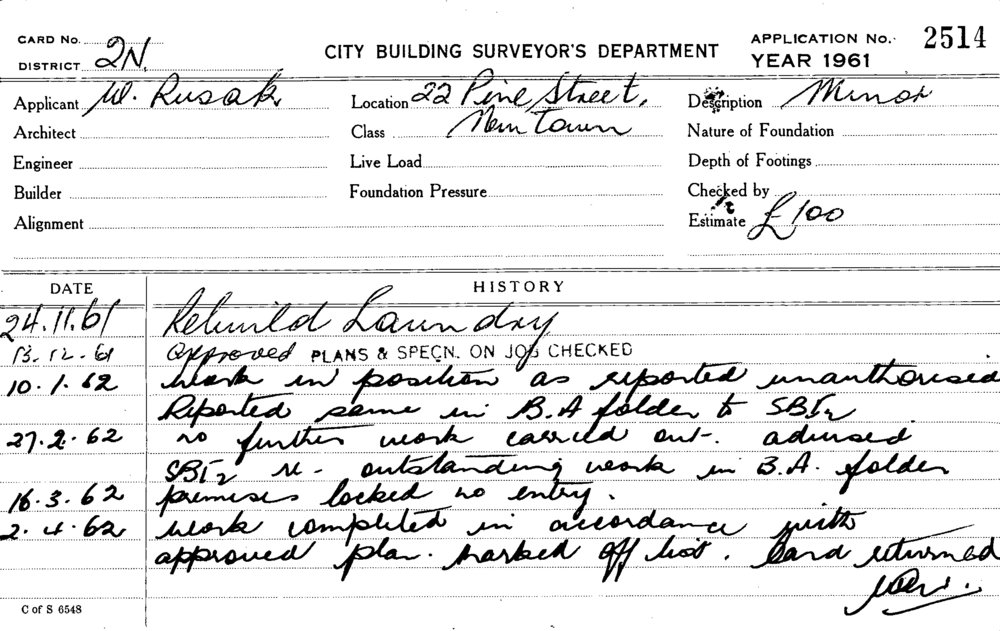 CARD No.
DISTRICT 2N.
CITY BUILDING SURVEYOR'S DEPARTMENT
APPLICATION No. 2514
YEAR 1961
Applicant W. Rusak Location 22 Pine Street, Description Minor
Architect Class New Town Nature of Foundation
Engineer Live Load Depth of Footings
Builder Foundation Pressure Checked by
Alignment Estimate £100
DATE HISTORY
24.11.61 Rebuild Laundry
13.12.61 approved PLANS & SPECN. ON JOB CHECKED
10.1.62 Work in position as reported unauthorised
Reported same in B.A folder to SBI2
27.2.62 no further work carried out. advised
SBI2 re- outstanding work in B.A. folder
16.3.62 premises locked no entry.
2.4.62 work completed in accordance with
approved plan. marked off list. Card returned
C of S 6548